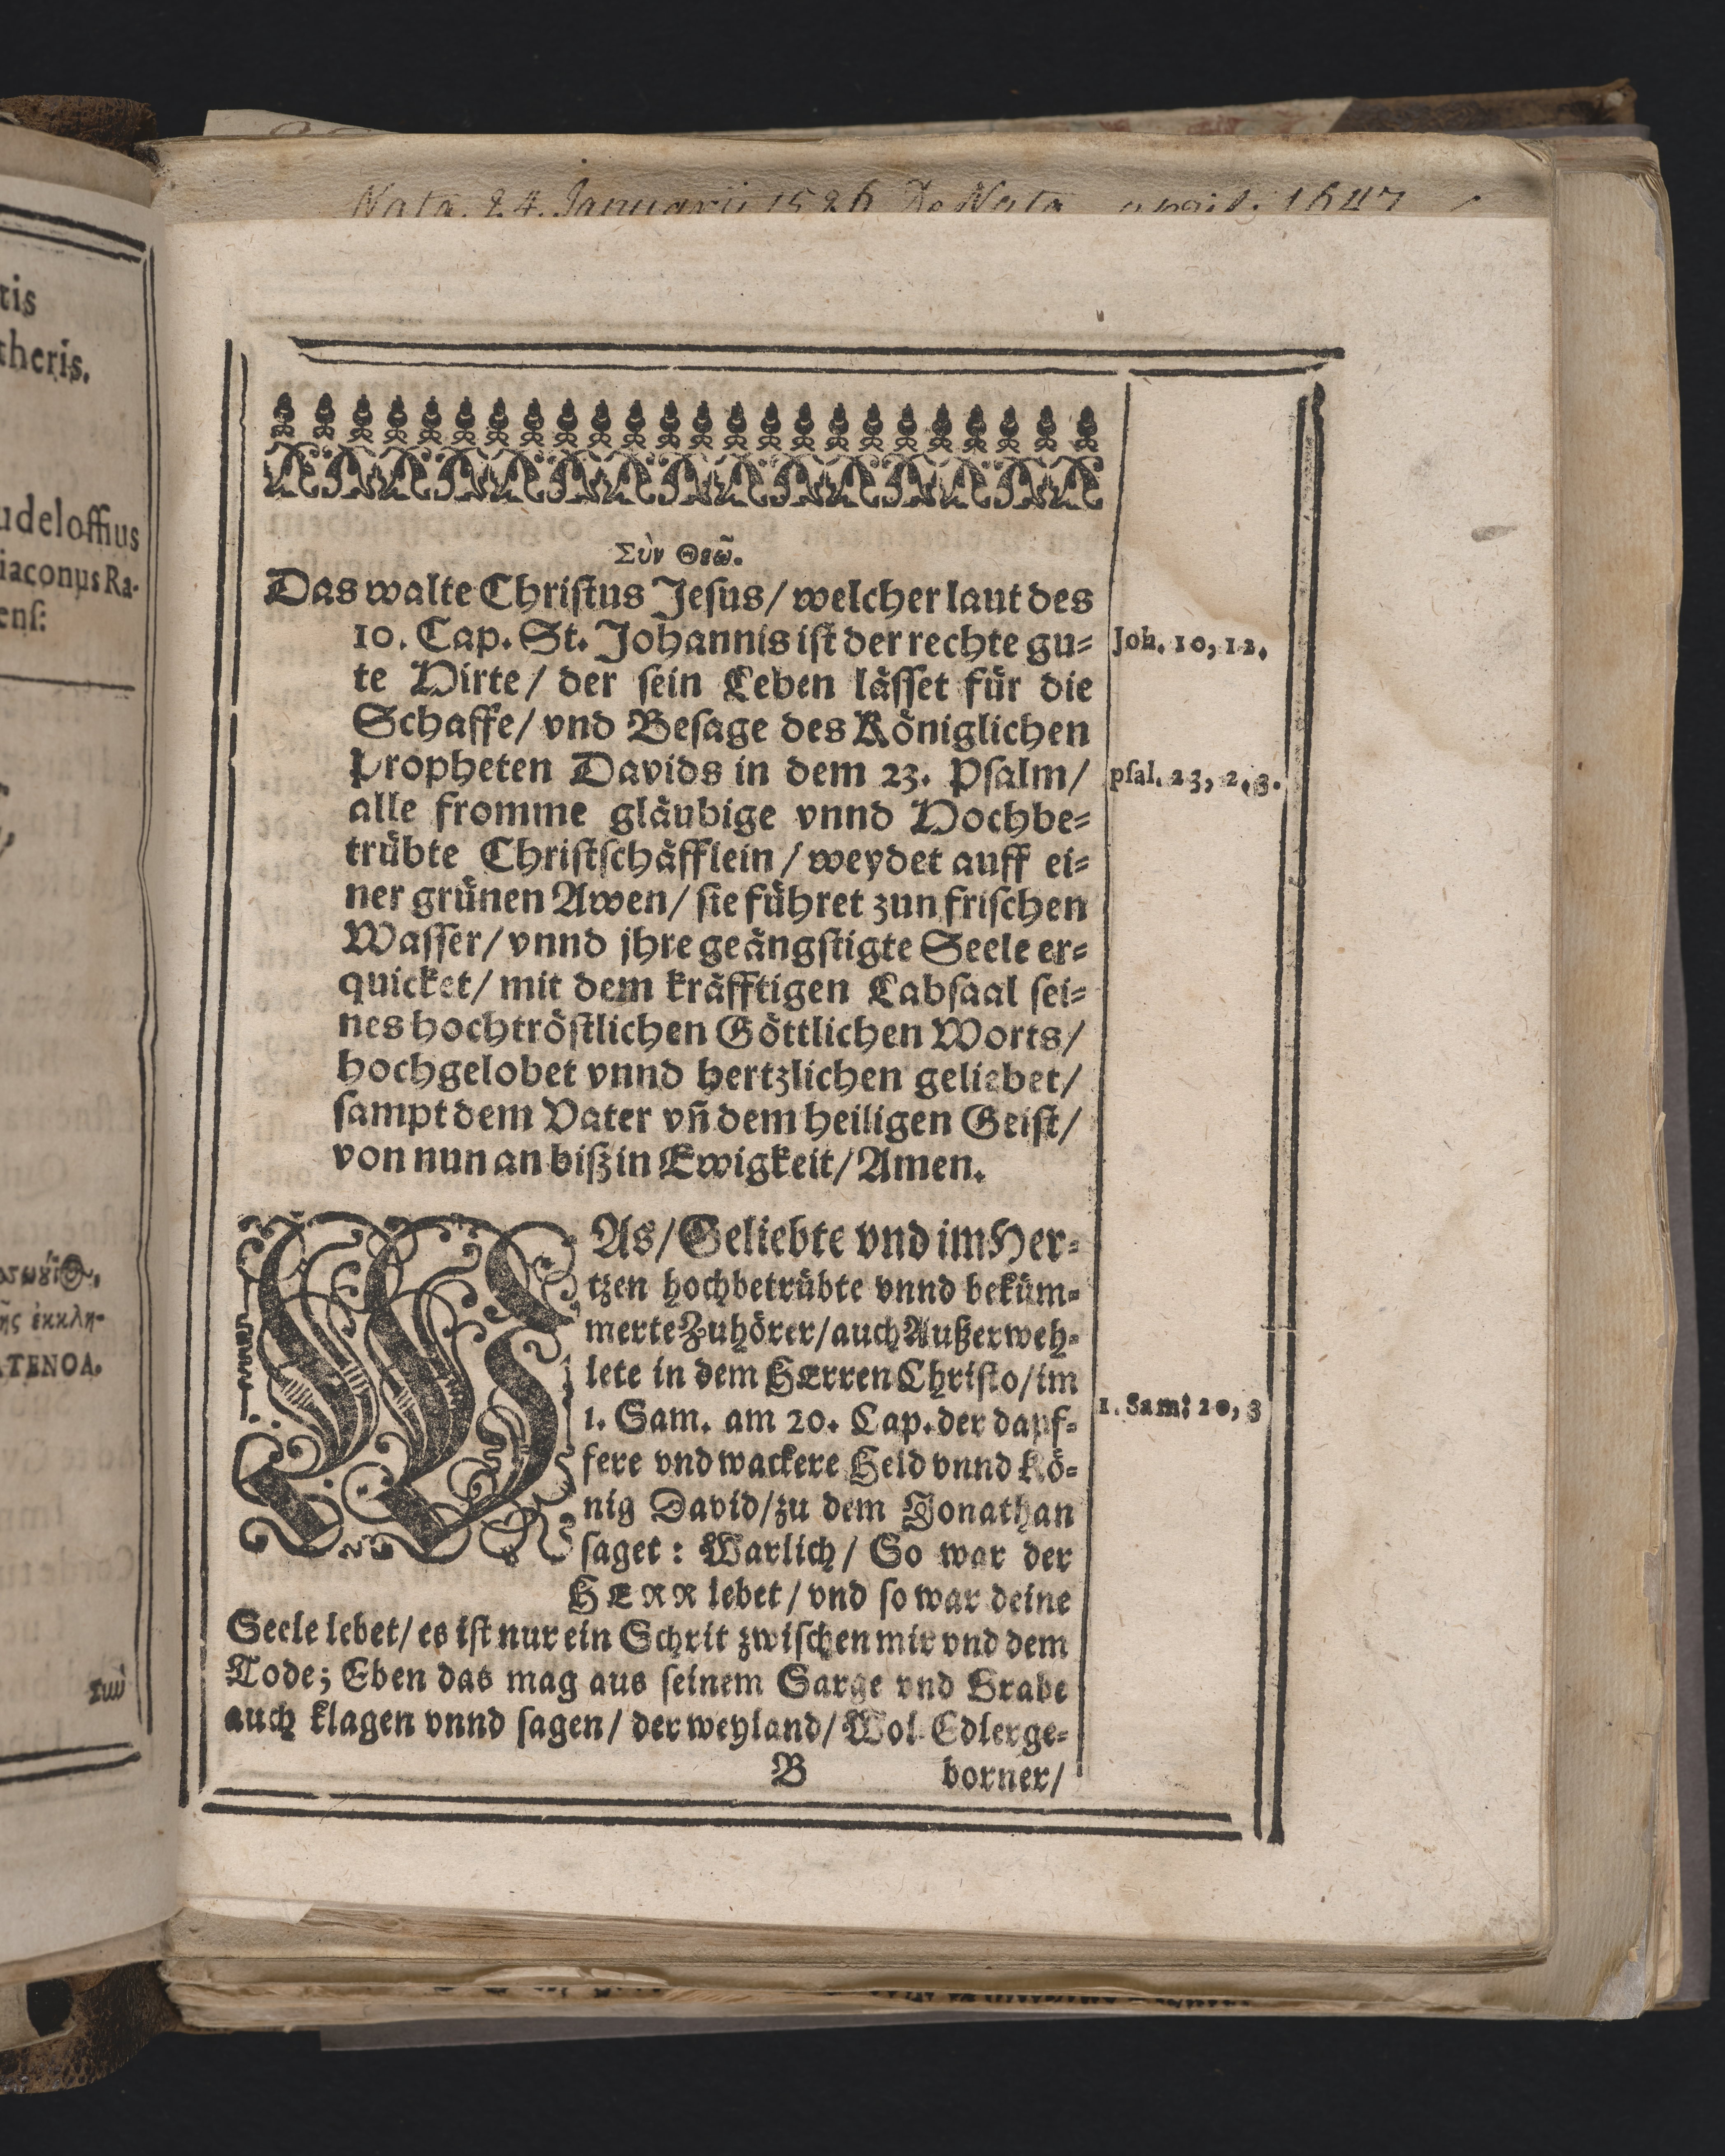 tis
theris.
udeloffius
iaconus Ra-
ens:
ῆς ἐκκλη-
ΑΤΕΝΟΑ.
Σὺν
Nata. 24. Januarii 1526 De Nata 1647
Σὺν Θεῷ.
Das walte Christus Jesus/ welcher laut des
10. Cap. St. Johannis ist der rechte gu-
te Hirte/ der sein Leben lässet für die
Schaffe/ vnd Besage des Königlichen
Propheten Davids in dem 23. Psalm/
alle fromme gläubige vnnd Hochbe-
trübte Christschäfflein/ weydet auff ei-
ner grünen Awen/ sie führet zun frischen
Wasser/ vnnd jhre geängstigte Seele er-
quicket/ mit dem kräfftigen Labsaal sei-
nes hochtröstlichen Göttlichen Worts/
hochgelobet vnnd hertzlichen geliebet/
sampt dem Vater vñ dem heiligen Geist/
von nun an biß in Ewigkeit/ Amen.
Joh. 10, 12.
psal. 23, 2, 3.
WAs/ Geliebte vnd im Her-
tzen hochbetrübte vnnd beküm-
merte Zuhörer/ auch Außerweh-
lete in dem HErren Christo/ im
1. Sam. am 20. Cap. der dapf-
fere vnd wackere Held vnnd Kö-
nig David/ zu dem Jonathan
saget: Warlich/ So war der
HERR lebet/ vnd so war deine
Seele lebet/ es ist nur ein Schrit zwischen mir vnd dem
Tode; Eben das mag aus seinem Sarge vnd Grabe
auch klagen vnnd sagen/ der weyland/ Wol Edlerge-
1. Sam: 20, 3
B borner/